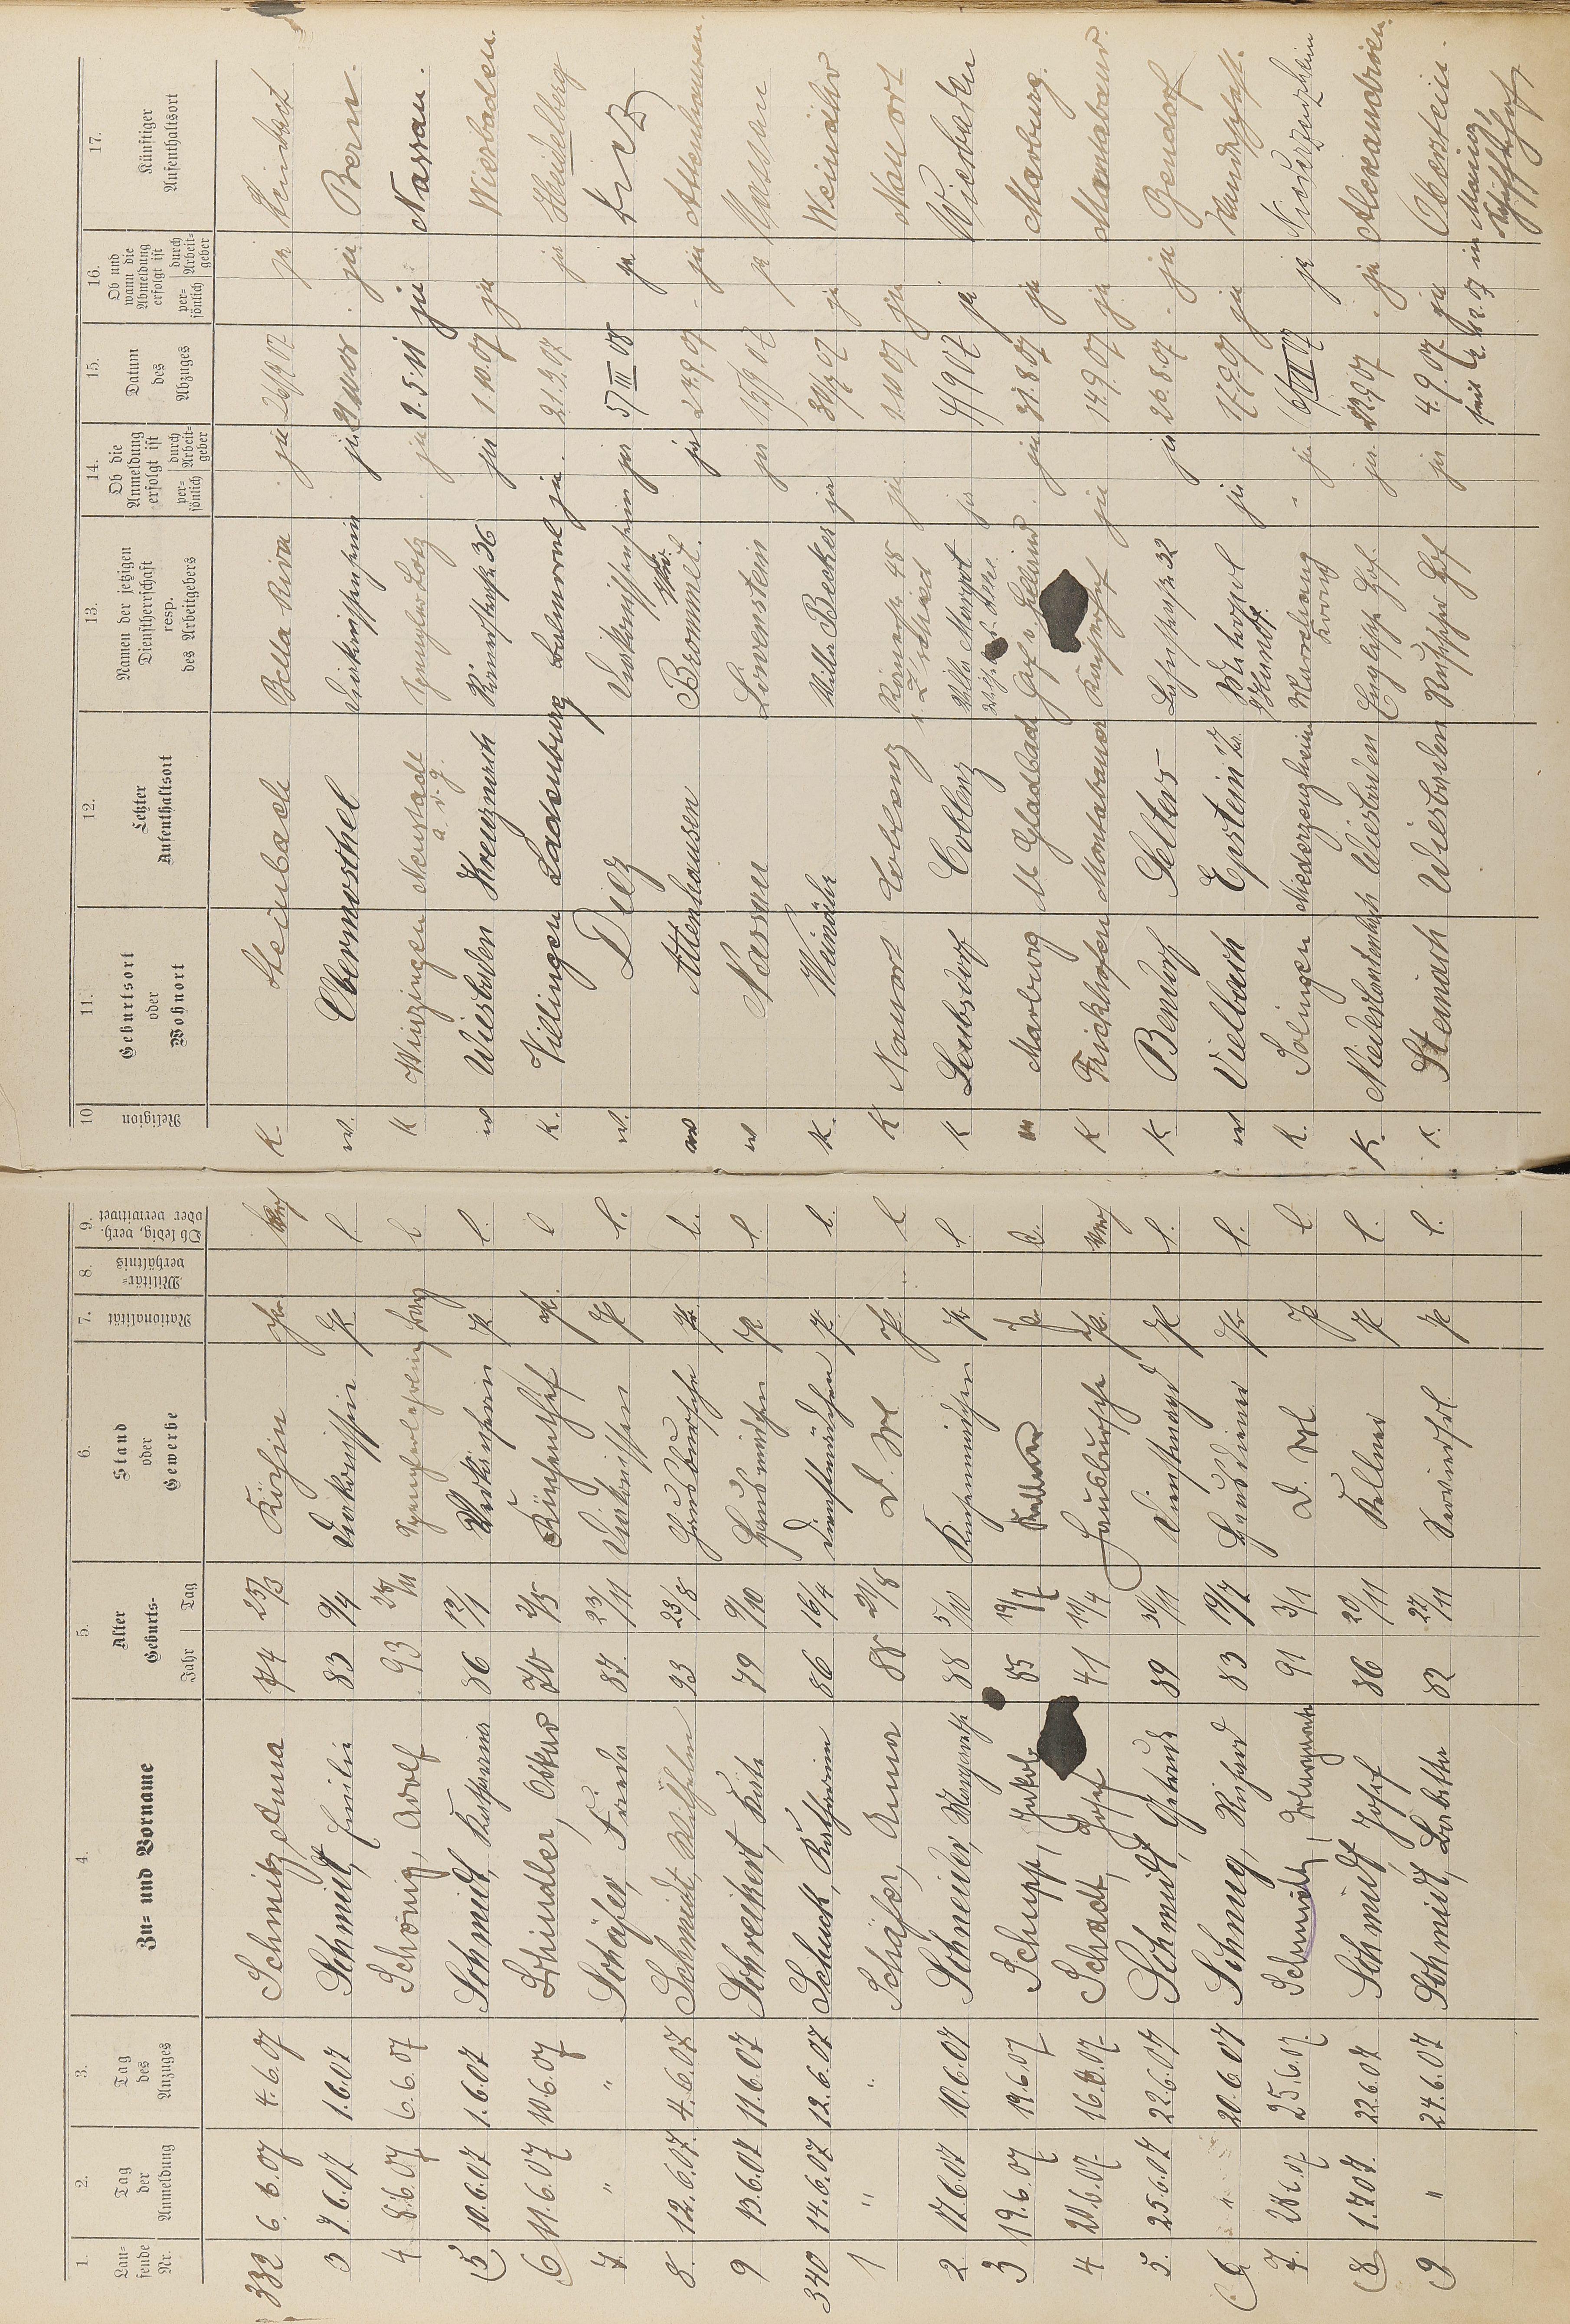 1. Lau= fende Nr.
2. Tag der Anmeldung
3. Tag des Anzuges
4. Zu= und Vorname
5. Alter Geburts= Jahr Tag
6. Stand oder Gewerbe
7. Nationalität
8. Militär= verhältnis
9. Ob ledig, verh. oder verwitwet
10 Religion
11. Geburtsort oder Wohnort
12. Letzter Aufenthaltsort
13. Namen der jetzigen Dienstherrschaft resp. des Arbeitgebers
14. Ob die Anmeldung erfolgt ist per= sönlich durch Arbeit= geber
15. Datum des Abzuges
16. Ob und wann die Abmeldung erfolgt ist per= sönlich durch Arbeit= geber
17. Künftiger Aufenthaltsort
332 6.6.07 4.6.07 Schmitz Anna 74 25/3 Köchin Pr. verh K. Steinbach Bella Riva ja ja Steinbach
3 7.6.07 1.6.07 Schmidt, Emilie 83 9/4 Diakonissin Pr. l. ev. Obermoschel Diakonissenheim ja ja Bern.
4 8.6.07 6.6.07 Schönig, Adolf 93 Spenglerlehrling Bay l K Winzingen Neustadt a. d. H. Spengler Lotz ja 1.5.11 ja Nassau.
5 10.6.07 1.6.07 Schmidt, Katharina 86 13/1 Pr. l. ev Wiesbaden Kreuznach Römerstraße 36 ja 1.10.07 ja Wiesbaden
6 11.6.07 10.6.07 Schindler, Oskar 70 2/5 Küchenchef l K. Villingen Ladenburg Balmoral ja. 21.9.07 ja Heidelberg
7. " " Schäfer, Frieda 87. 23/11 Diakonissin Pr l. ev. Diez Diakonissenheim ja 5/III 08 ja Diez
8. 12.6.07. 4.6.07 Schmidt, Wilhelm 93 23/8 Hausbursche Pr. l. ev Attenhausen Brommelt. ja 24.9.07 ja Attenhausen
9 13.6.07 11.6.07 Schreikert, Käte 79 9/10 Hausmädchen Pr. l. ev Nassau Löwenstein ja 15/9 07 ja Nassau
340 14.6.07 12.6.07 Schuck, Katharina 86 16/4 Dienstmädchen Pr. l. K. Weinähr Villa Becker ja ja Weinähr
1 " " Schäfer, Anna 88 21/8 D. Ml. Pr. l. K Nauort Coblenz Römerstr. 48 ja 1.10.07 ja Nauort
2. 17.6.07 10.6.07 Schneider, Margarethe 88 5/10 Küchenmädchen Pr. l. K Leubsdorf Coblenz Villa Margot ja 4/9 07 ja Wiesbaden
3 19.6.07 19.6.07 Schupp, Jakob 85 19/7 Kellner Pr l. Marburg M. Gladbach ja 31.8.07 ja Marburg.
4 20.6.07. 16.6.07. Schadt, Josef 41 19/4 Hausbursche Pr. verh K Frickhofen Montabaur Kaiserhof ja 14.9.07 ja Montabaur.
5. 25.6.07 22.6.07 Schmidt, Gertrud 89 30/11 Dienstmagd Pr l. K Bendorf Selters Bahnstraße 32 ja 26.8.07 ja Bendorf
6 " 20.6.07 Schnug, Richard 83 19/7 Hausdiener Pr. l. ev Vielbach Epstein ja 17.9.07 ja
7. 28.6.07 25.6.07. Schmidt, Hildegarde 91 3/1 D. Ml. Pr l. K. Solingen Niederzeuzheim ja ja Niederzeuzheim
8 1.7.07. 22.6.07 Schmidt, Josef 86 20/11 Kellner Pr l. K. Wiesbaden Englischer Hof. ja 22.9.07 ja Alexandrien.
9 " 24.6.07 Schmidt, Babetta 82 27/11 Servierfrl. Pr l. K. Steinach Wiesbaden Russischer Hof ja 4.9.07 ja Oberstein.
seit in Mainz,